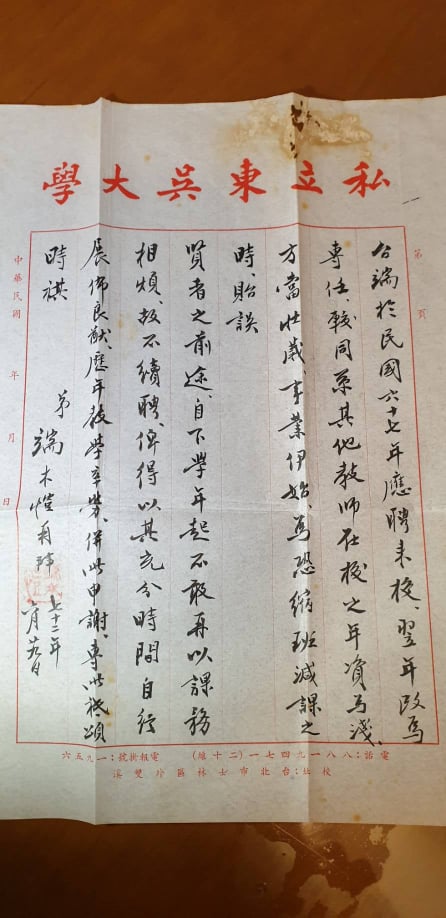 私立東吳大學
第 頁
台端於民國六十七年應聘來校、翌年改為
專任、較同系其他教師在校之年資為淺、
方當壯歲、事業伊始、為恐縮班減課之
時、貽誤
賢者之前途、自下學年起不敢再以課務
相煩、故不續聘、俾得以其充分時間自行
展佈良猷、歷年教學辛勞、併此申謝、專此祗頌
時祺
弟 端木愷
七十二年
中華民國 年 月 日
電話:八八一九四七一(二十線) 電報掛號:一九五六
校址:台北市士林區外雙溪